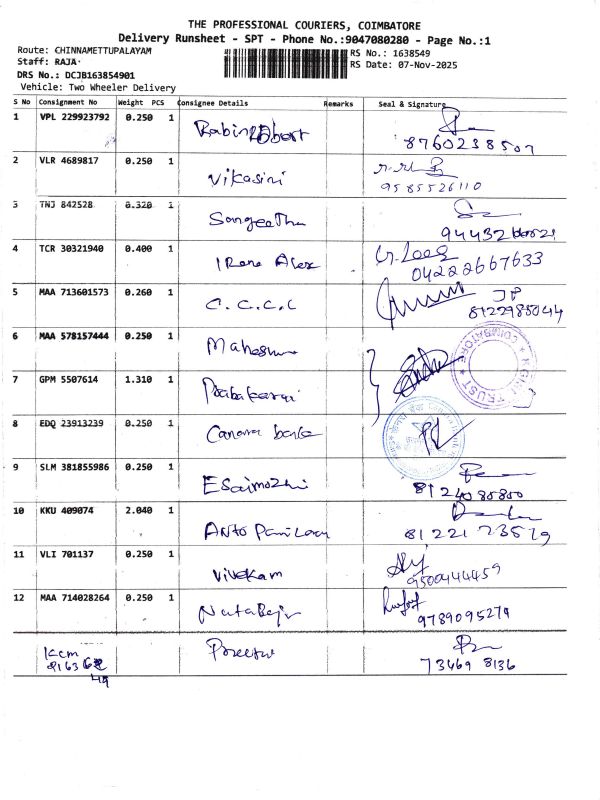 THE PROFESSIONAL COURIERS, COIMBATORE
Delivery Runsheet - SPT - Phone No.:9047080280 - Page No.:1
Route: CHINNAMETTUPALAYAM
RS No.: 1638549
Staff: RAJA
RS Date: 07-Nov-2025
DRS No.: DCJB163854901
Vehicle: Two Wheeler Delivery
S No Consignment No Weight PCS Consignee Details Remarks Seal & Signature
1 VPL 229923792 0.250 1
8760238507
2 VLR 4689817 0.250 1 Vikasini
9585526110
3 TNJ 842528 0.320 1 Sangeetha
4 TCR 30321940 0.400 1 Irene Alex
04222667633
5 MAA 713601573 0.260 1 C.C.C.C
JP
8122985044
6 MAA 578157444 0.250 1
COIMBATORE
TRUST
7 GPM 5507614 1.310 1
8 EDQ 23913239 0.250 1 Canara bank
9 SLM 381855986 0.250 1 Esaimozhi
8124085850
10 KKU 409074 2.040 1
81221 73519
11 VLI 701137 0.250 1 Vivekam
9500444459
12 MAA 714028264 0.250 1
9789095279
73469 8136